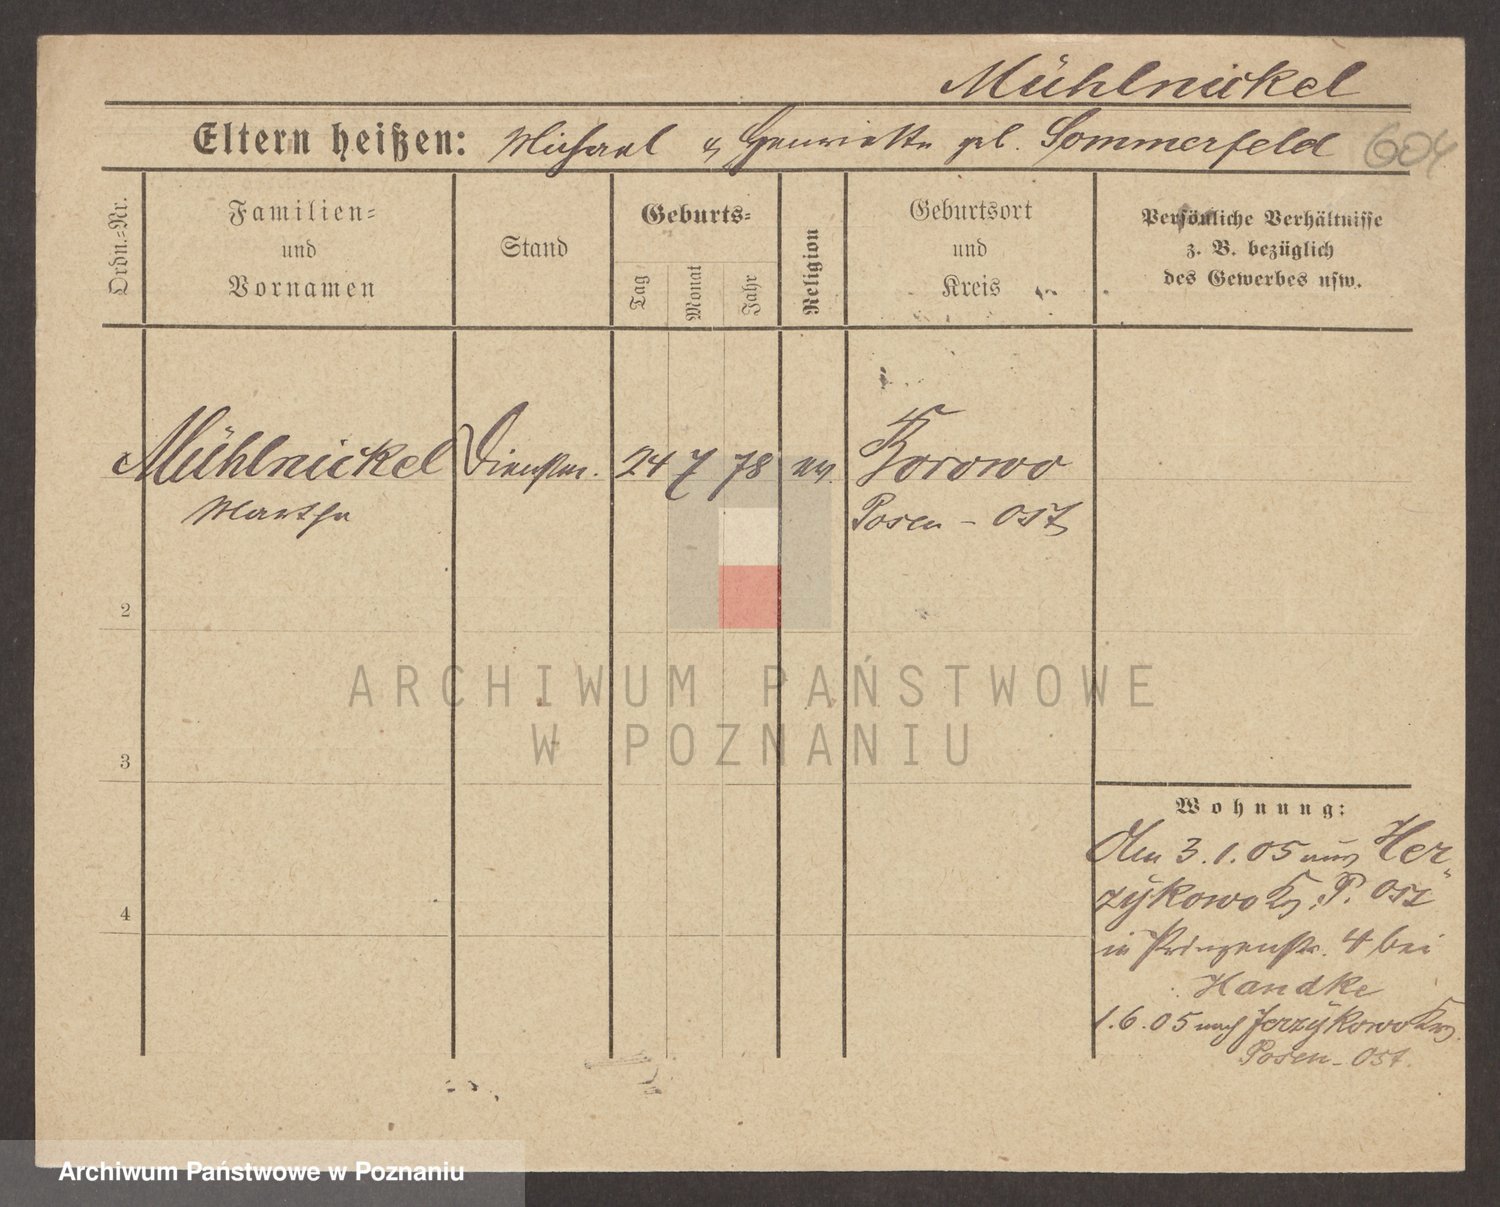 Mühlnickel
Eltern heißen: Michael & Henriette geb. Sommerfeld 604
Ordn.-Nr.
Familien-
und
Vornamen
Stand
Geburts-
Tag
Monat
Jahr
Religion
Geburtsort
und
Kreis
Persönliche Verhältnisse
z. B. bezüglich
des Gewerbes usw.
Mühlnickel Dienstm. 24 7 78 ev. Borowo
Martha Posen - Ost
2
ARCHIWUM PAŃSTWOWE
W POZNANIU
3
Wohnung:
3.1.05 aus Her-
zykowo Kr. P. Ost
in Prinzenstr. 4 bei
Handke
1.6.05 nach Jerzykowo Kr.
Posen-Ost.
4
Archiwum Państwowe w Poznaniu